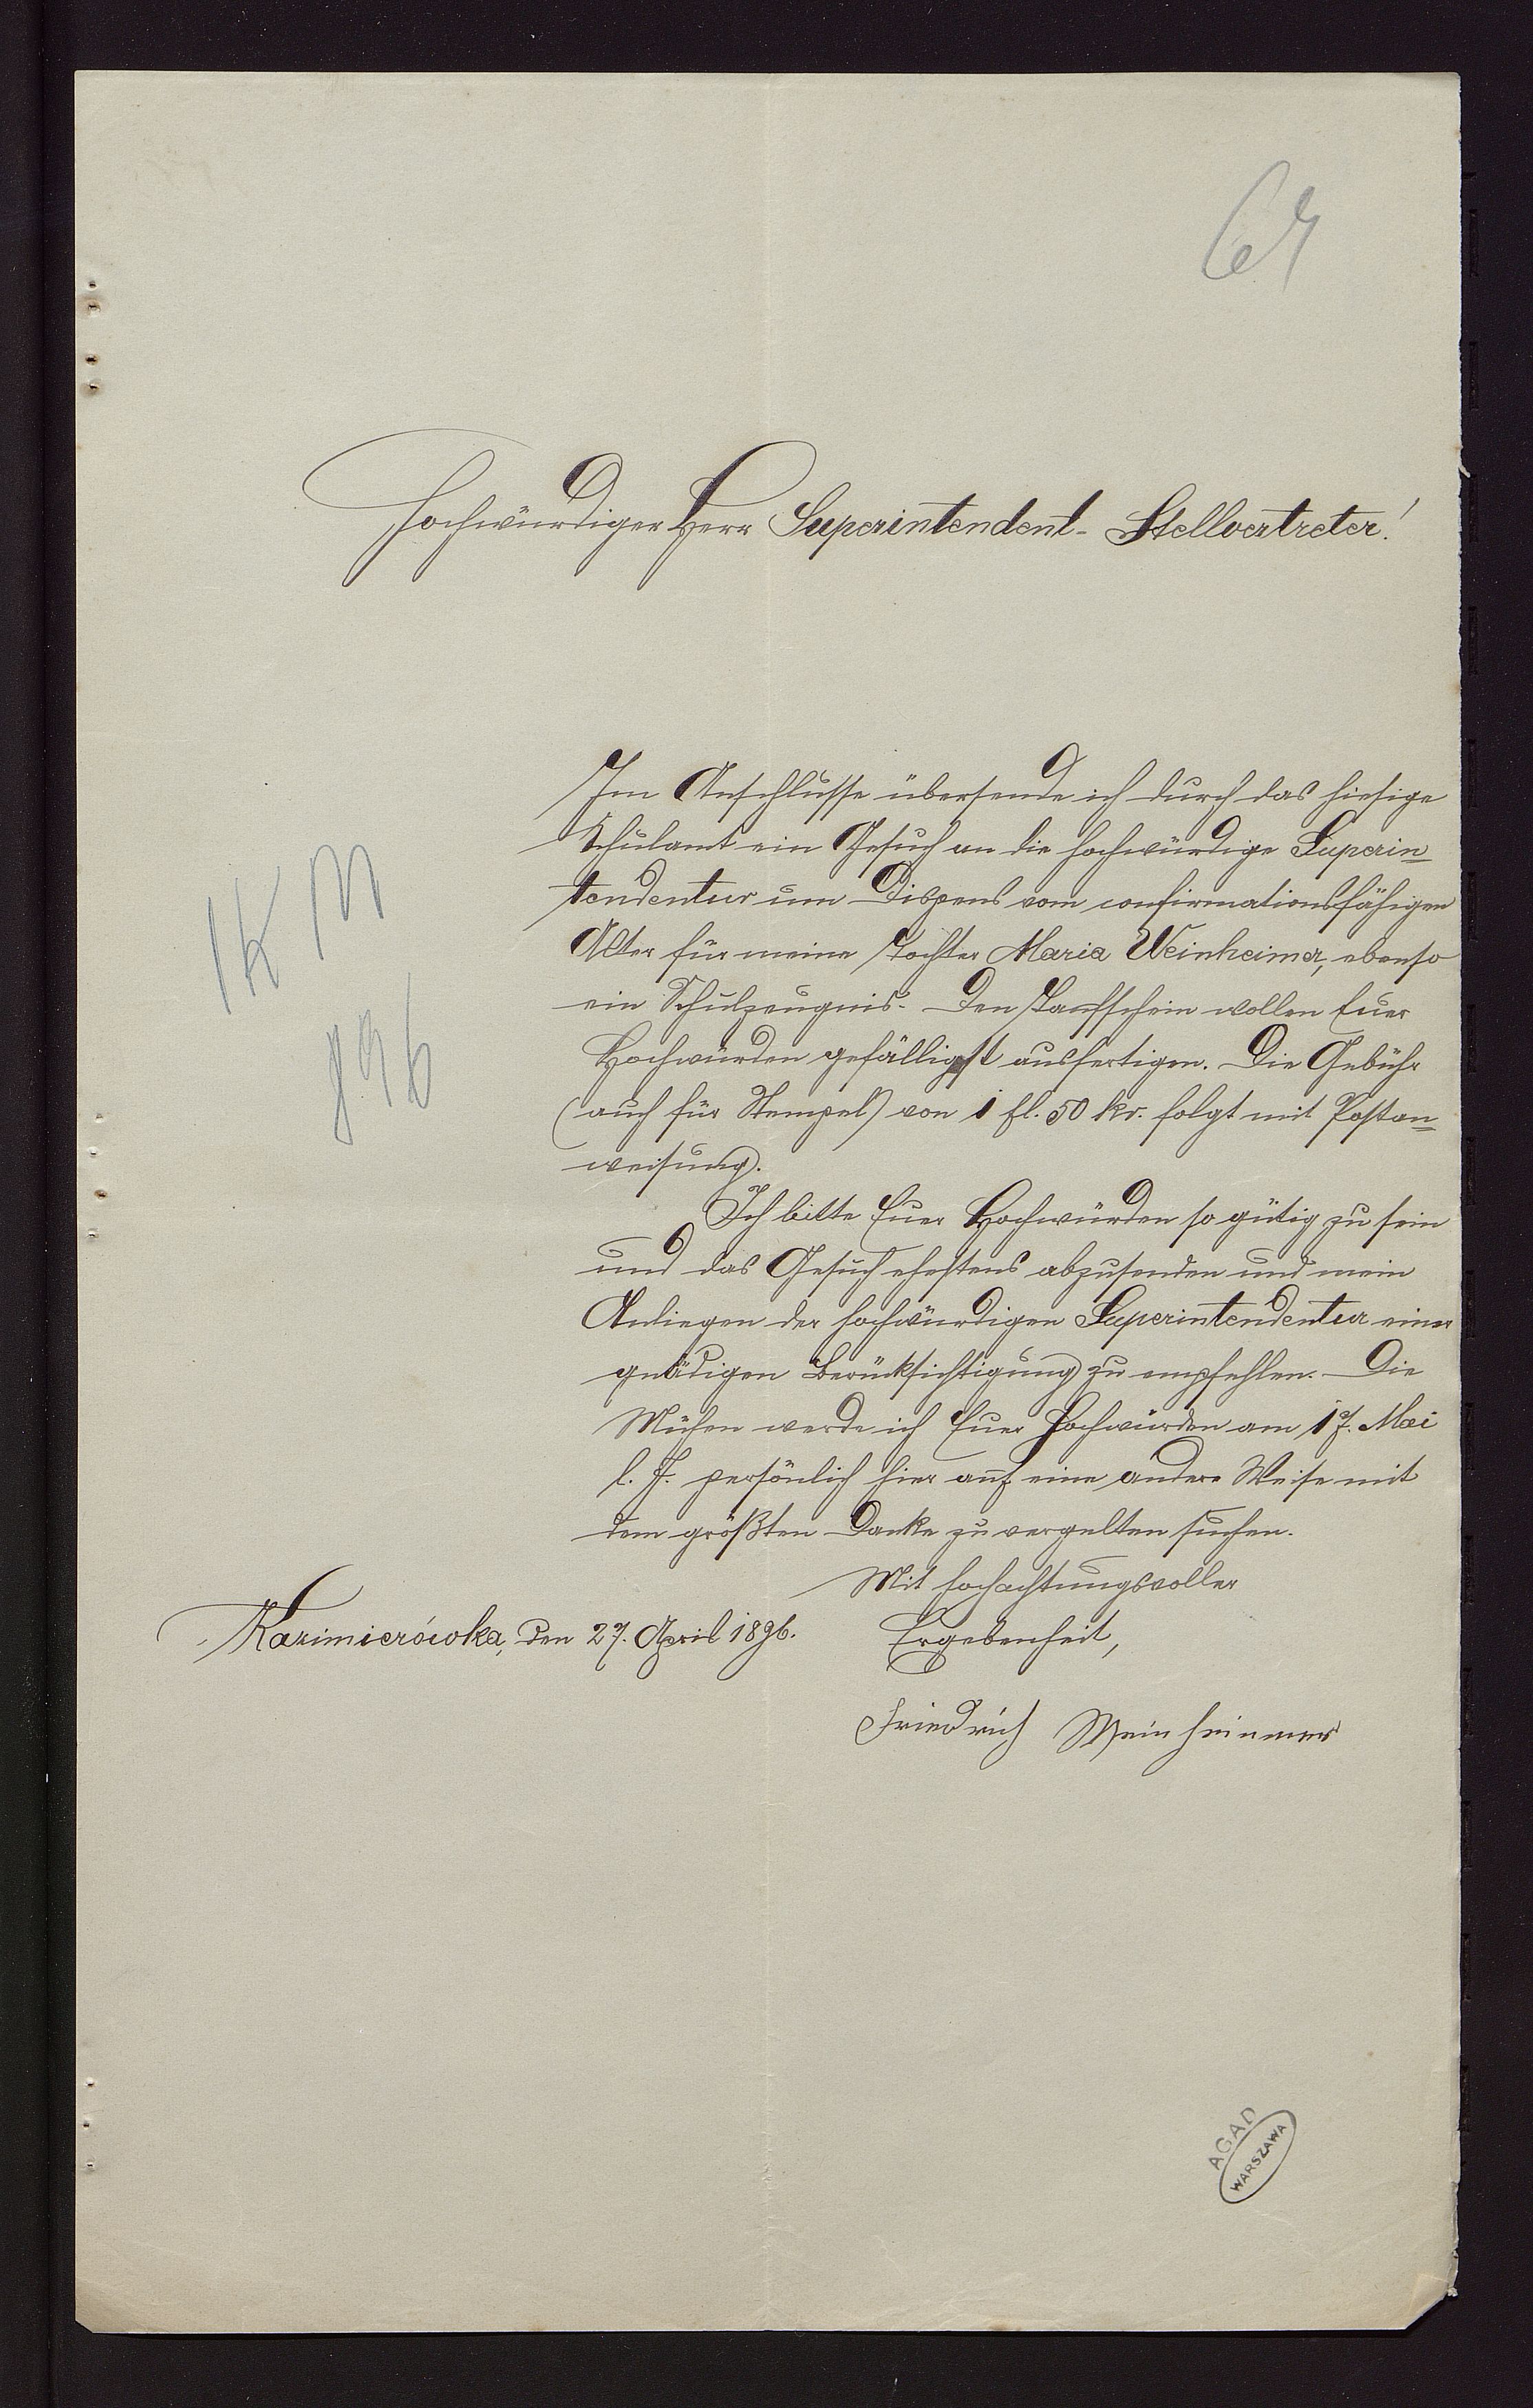 Hochwürdiger Herr Superintendent-Stellvertreter!
Im Anschlusse übersende ich durch das hiesige
Schulamt ein Gesuch an die hochwürdige Superin=
tendentur um Dispens vom confirmationsfähigen
Alter für meine Tochter Maria Weinheimer, ebenso
ein Schulzeugnis. Den Taufschein wollen Euer
Hochwürden gefälligst ausfertigen. Die Gebühr
(auch für Stempel) von 1 fl. 50 kr. folgt mit Postan=
weisung.
Ich bitte Euer Hochwürden so gütig zu sein
und das Gesuch ehestens abzusenden und mein
Anliegen der hochwürdigen Superintendentur einer
gnädigen Berücksichtigung zu empfehlen. Die
Mühen werde ich Euer Hochwürden am 17. Mai
l. J. persönlich hier auf eine andere Weise mit
dem größten Danke zu vergelten suchen.
Mit hochachtungsvoller
Kazimierówka, den 27. April 1896.
Ergebenheit,
Friedrich Weinheimer
896
AGAD
WARSZAWA